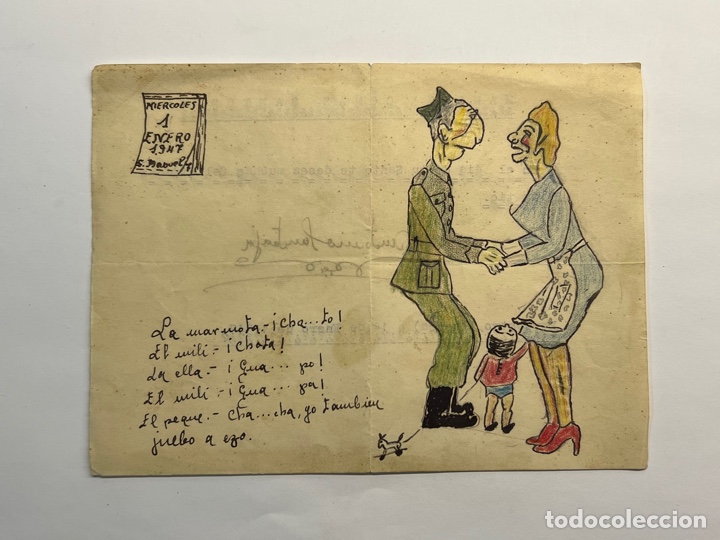 MIERCOLES
1
ENERO
1947
S. Manuel
La marmota.- ¡Cha...to!
El mili.- ¡Chata!
La ella.- ¡Gua...po!
El mili.- ¡Gua...pa!
El peque.- Cha...cha, yo tambien
juebo a ezo.
todocoleccion
todocoleccion.net